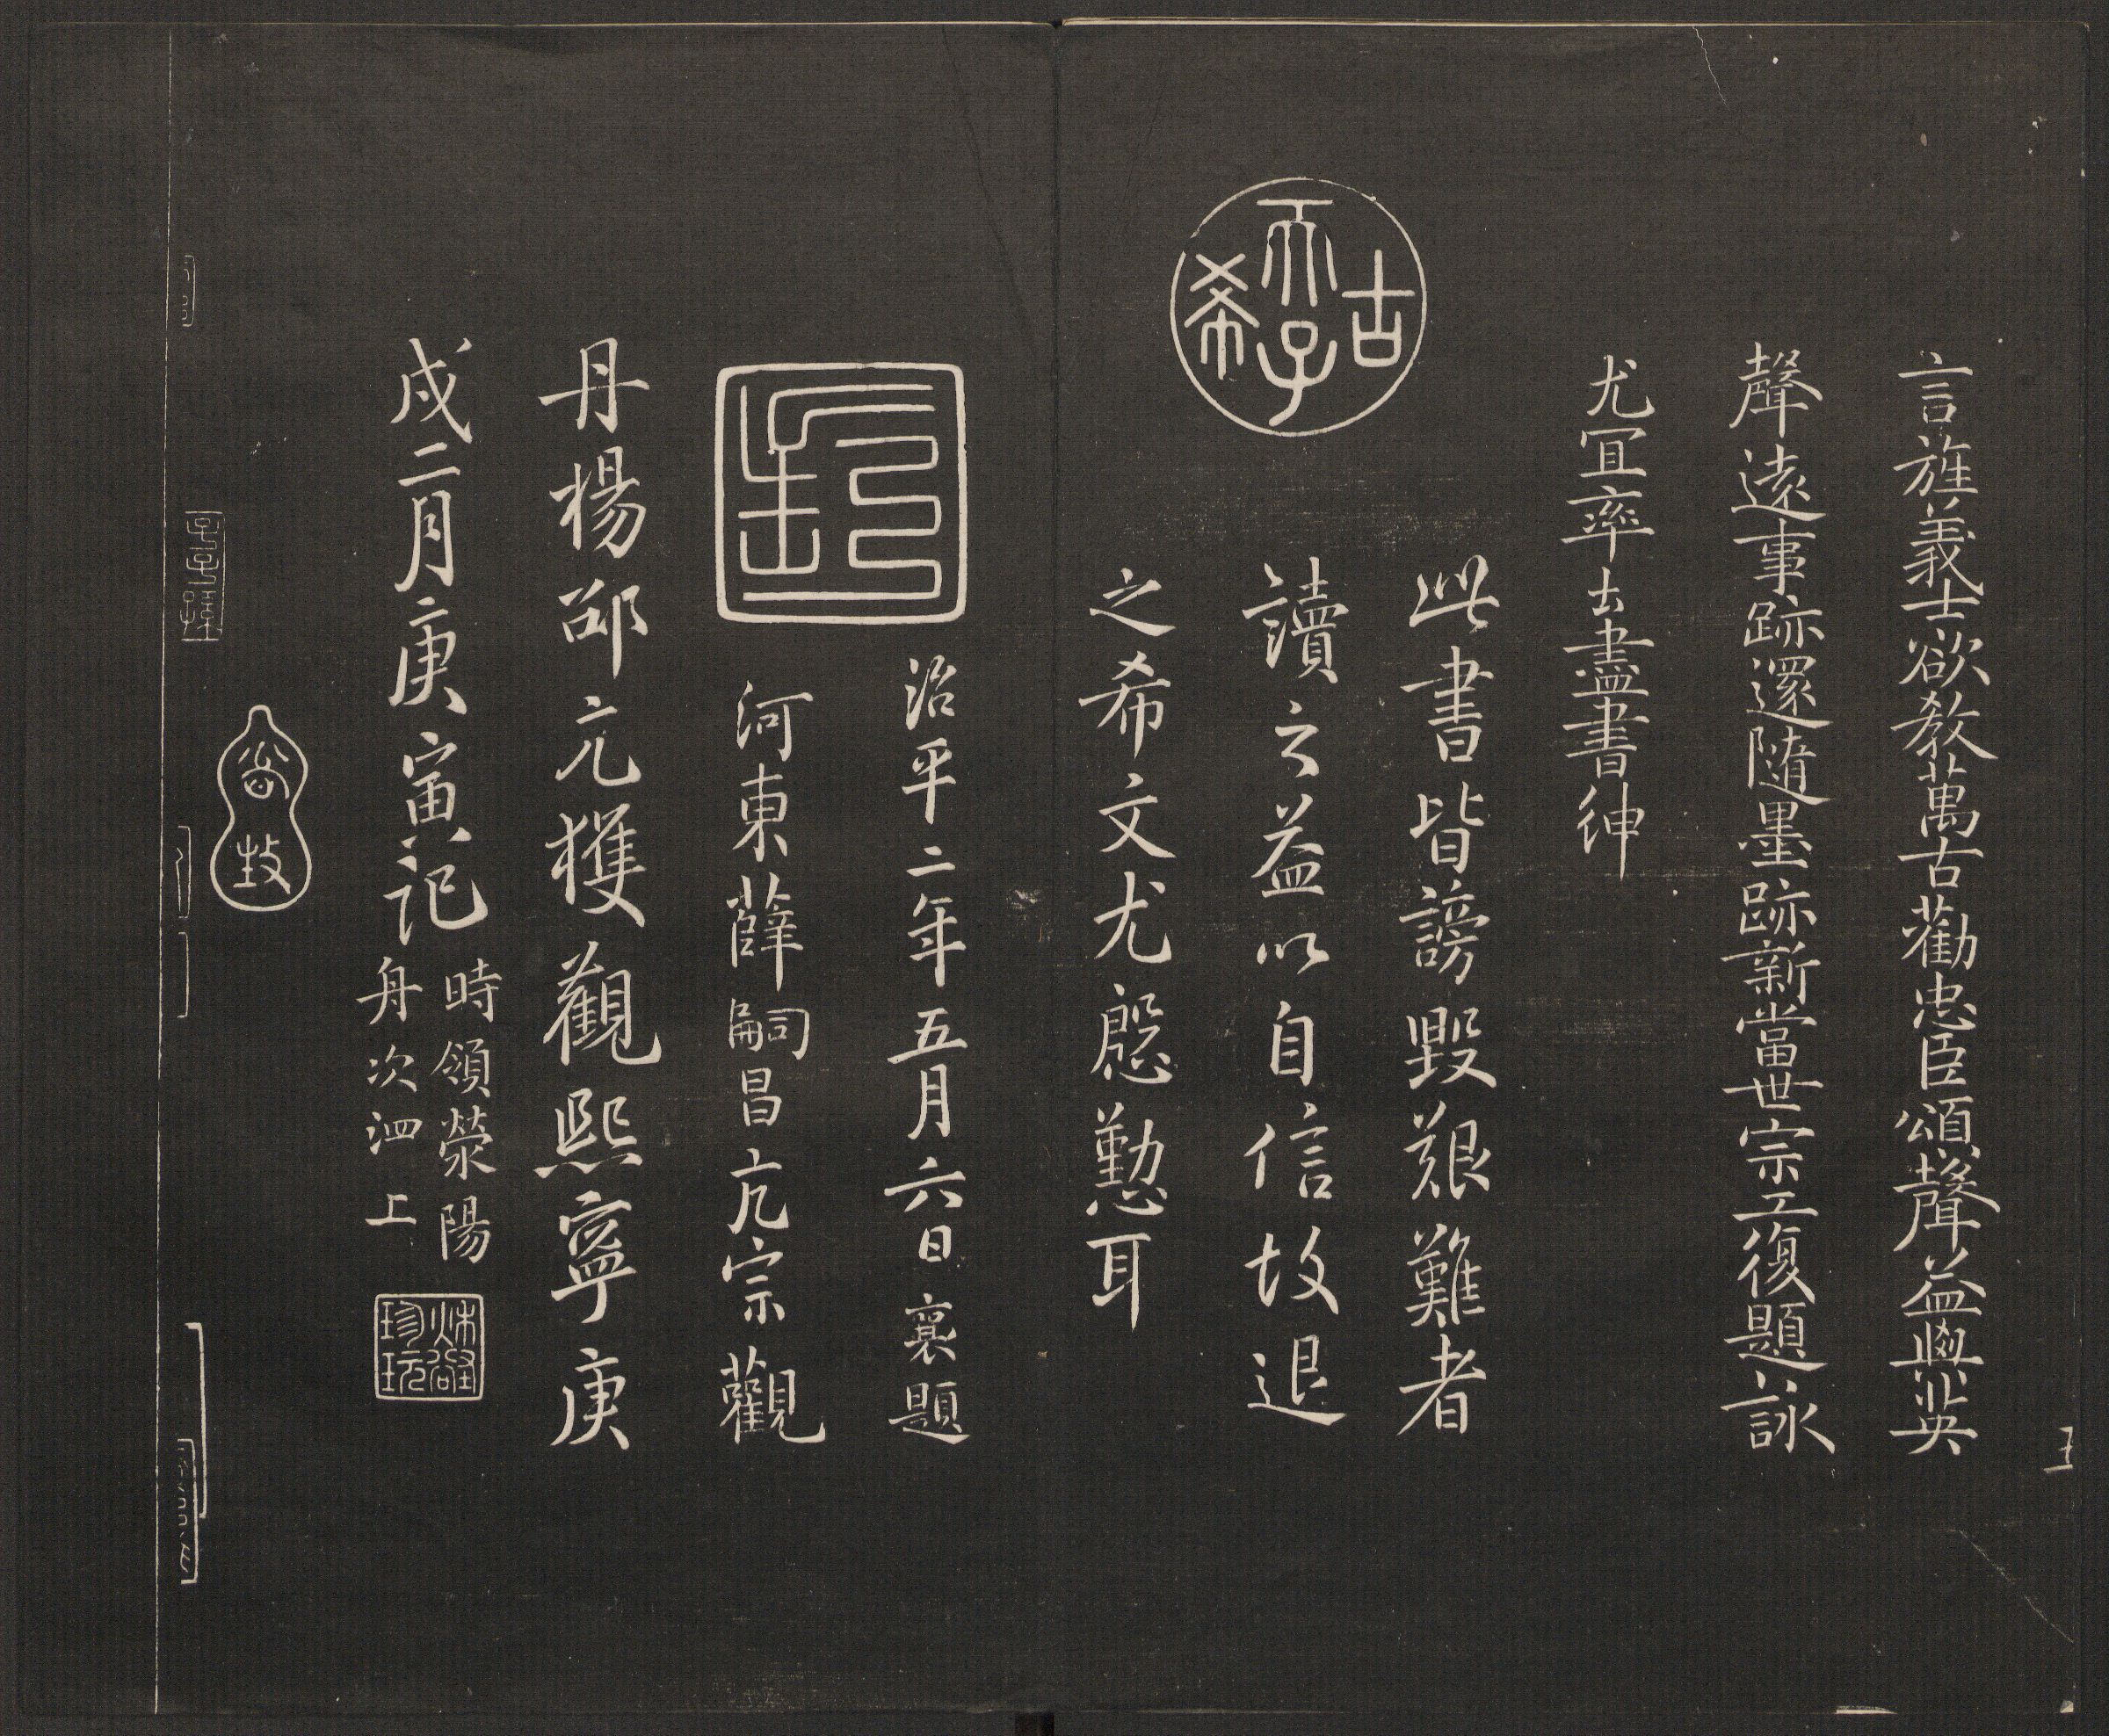 言旌義士欲教萬古勸忠臣頌聲益與英
聲遠事跡還隨墨跡新當世宗工復題詠
尤宜率土盡書紳
古
天子
希
此書皆謗毀艱難者
讀之益以自信故退
之希文尤慇懃耳
治平二年五月六日襄題
河東薛嗣昌亢宗觀
丹楊邵亢獲觀熙寧庚
戌二月庚寅記
時領滎陽
舟次泗上
秋壑
珍玩